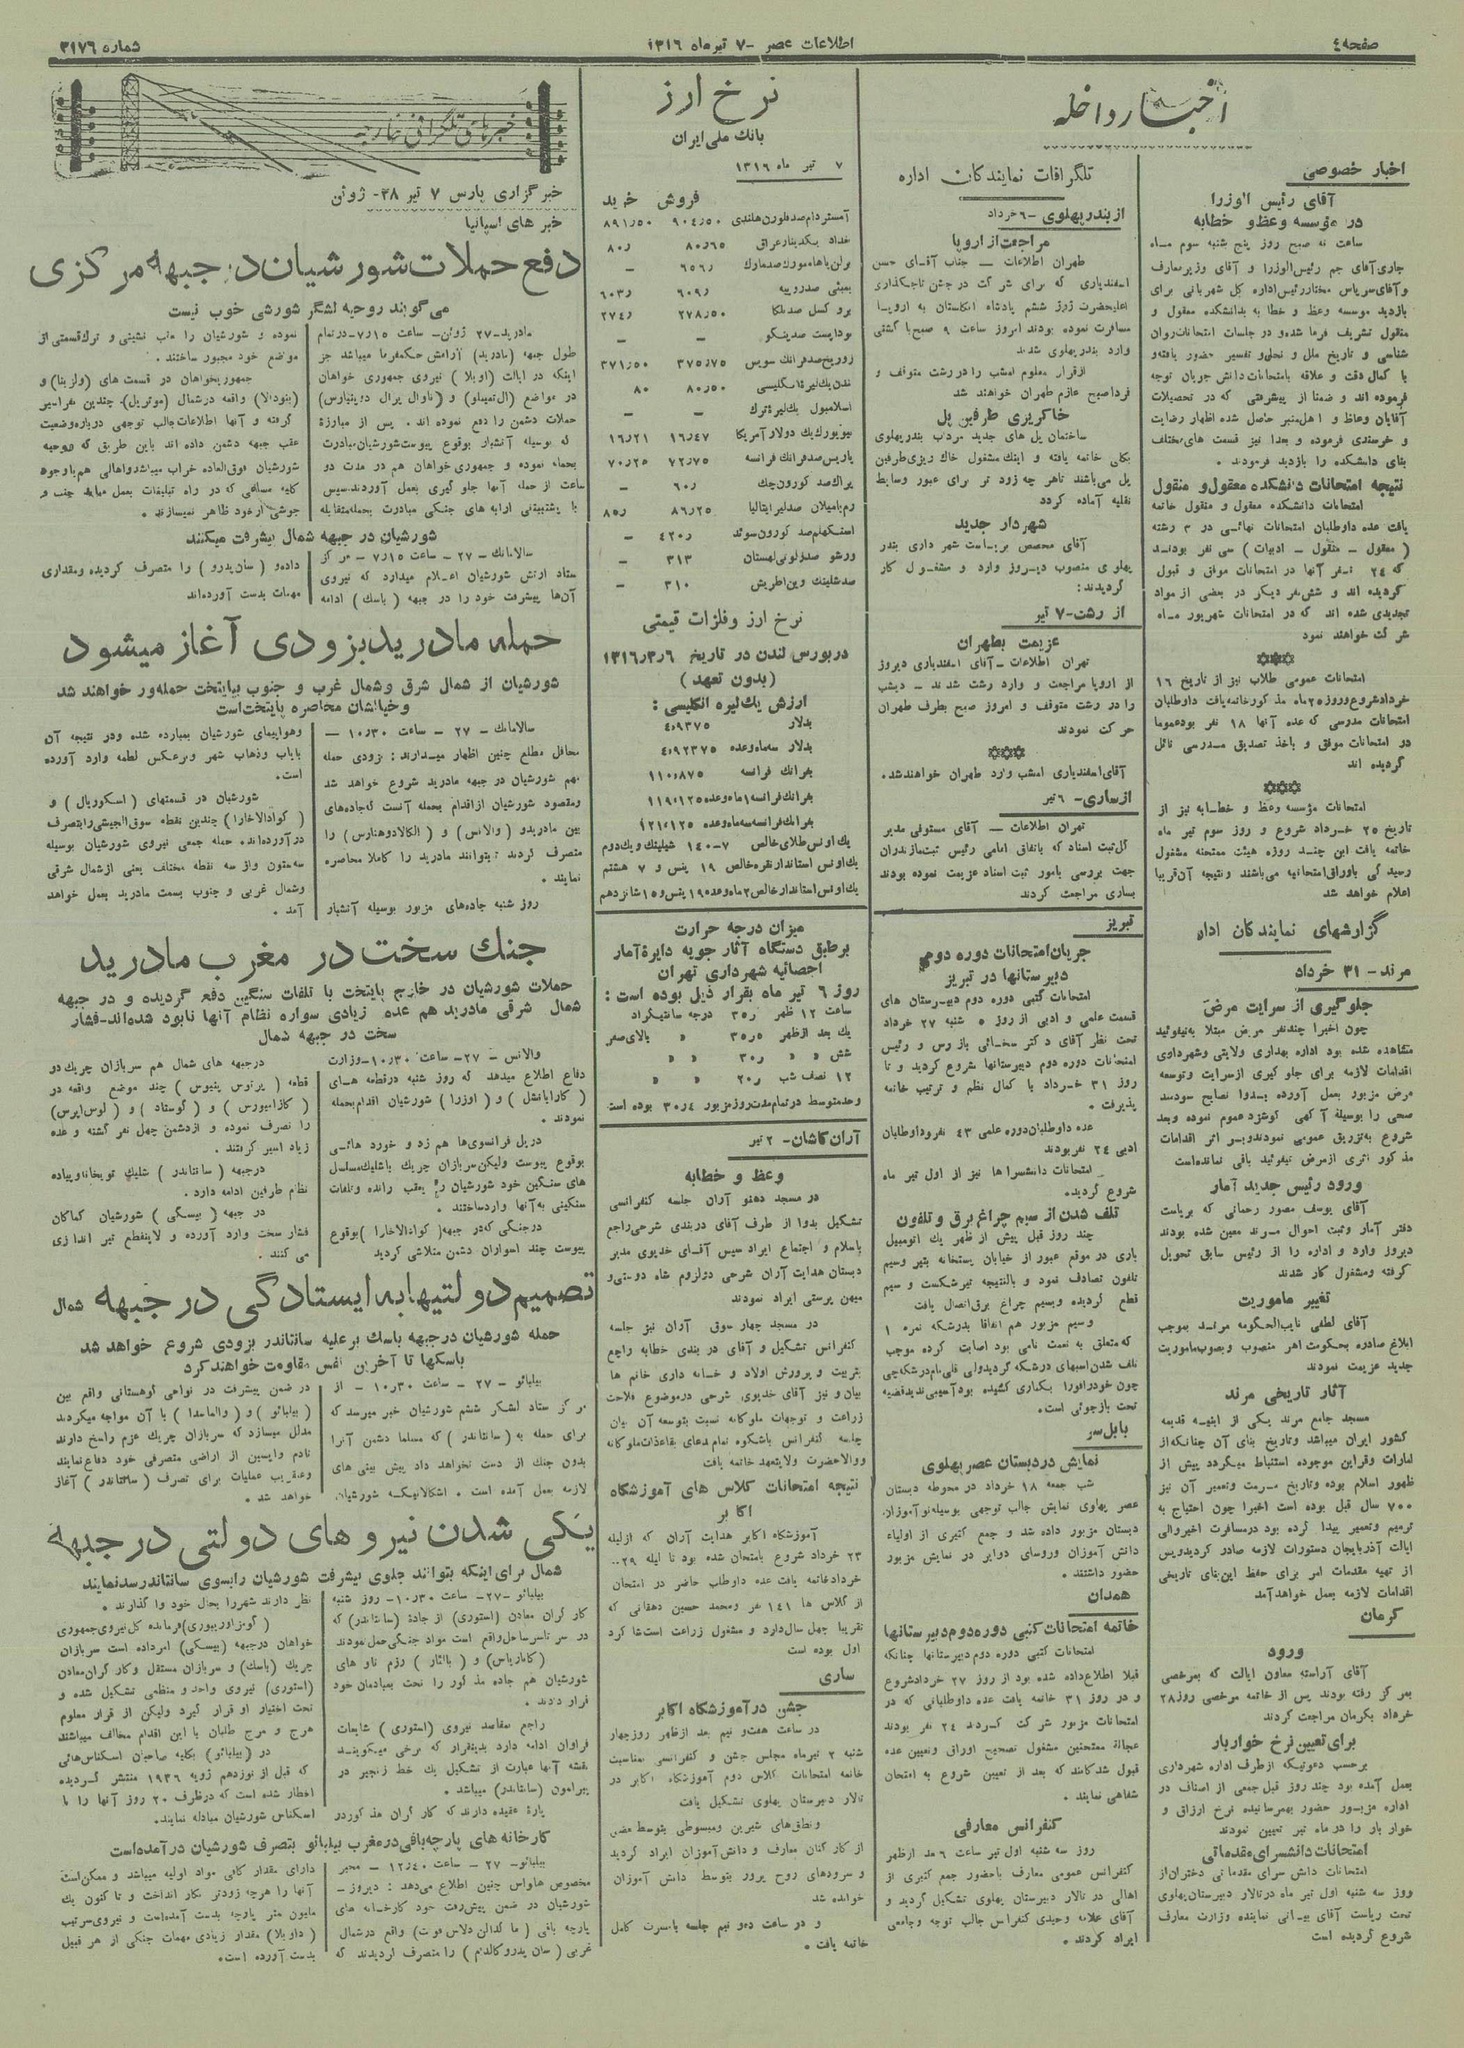 صفحه ٤
اطلاعات عصر -٧ تیرماه ١٣١٦
شماره ٣١٧٦
اخبار داخله
اخبار خصوصی
آقای رئیس الوزرا
در مؤسسه وعظ و خطابه
ساعت نه صبح روز پنج شنبه سوم ماه
جاری آقای جم رئیس‌الوزرا و آقای وزیر معارف
و آقای سرپاس مختار رئیس اداره کل شهربانی برای
بازدید موسسه وعظ و خطابه بدانشکده معقول و
منقول تشریف فرما شده و در جلسات امتحانات روان
شناسی و تاریخ ملل و نحل و تفسیر حضور یافته و
با کمال دقت و علاقه بامتحانات دانش جویان توجه
فرموده اند و ضمنا از پیشرفتی که در تحصیلات
آقایان وعاظ و اهل منبر حاصل شده اظهار رضایت
و خرسندی فرموده و بعدا نیز قسمت های مختلف
بنای دانشکده را بازدید فرمودند.
نتیجه امتحانات دانشکده معقول و منقول
امتحانات دانشکده معقول و منقول خاتمه
یافت عده داوطلبان امتحانات نهائی در ٣ رشته
( معقول - منقول - ادبیات ) سی نفر بودند
که ٢٤ نفر آنها در امتحانات موفق و قبول
گردیده اند و شش نفر دیگر در بعضی از مواد
تجدیدی شده اند که در امتحانات شهریور ماه
شرکت خواهند نمود
امتحانات عمومی طلاب نیز از تاریخ ١٦
خرداد شروع و روز ٢٥ ماه مذکور خاتمه یافت داوطلبان
امتحانات مدرسی که عده آنها ١٨ نفر بود عموما
در امتحانات موفق و باخذ تصدیق مدرسی نائل
گردیده اند
امتحانات مؤسسه وعظ و خطابه نیز از
تاریخ ٢٥ خرداد شروع و روز سوم تیر ماه
خاتمه یافت این چند روزه هیئت ممتحنه مشغول
رسیدگی باوراق امتحانیه می‌باشند و نتیجه آن قریبا
اعلام خواهد شد
گزارشهای نمایندگان اداره
مرند - ٣١ خرداد
جلوگیری از سرایت مرض
چون اخیرا چند نفر مریض مبتلا به تیفوئید
مشاهده شده بود اداره بهداری ولایتی و شهرداری
اقدامات لازمه برای جلو گیری از سرایت و توسعه
مرض مزبور بعمل آورده بدوا نصایح سودمند
صحی را بوسیله آگهی گوشزد عموم نموده و بعد
شروع به تزریق عمومی نمودند و بر اثر اقدامات
مذکور اثری از مرض تیفوئید باقی نمانده است
ورود رئیس جدید آمار
آقای یوسف منصور رحمانی که بریاست
دفتر آمار وثبت احوال مرند معین شده بودند
دیروز وارد و اداره را از رئیس سابق تحویل
گرفته ومشغول کار شدند
تغییر ماموریت
آقای لطفی نایب‌الحکومه مرند بموجب
ابلاغ صادره بحکومت اهر منصوب و بصوب ماموریت
جدید عزیمت نمودند
آثار تاریخی مرند
مسجد جامع مرند یکی از ابنیه قدیمه
کشور ایران میباشد وتاریخ بنای آن چنانکه از
امارات وقراین موجوده استنباط میگردد پیش از
ظهور اسلام بوده وتاریخ مرمت وتعمیر آن نیز
٧٠٠ سال قبل بوده است اخیرا چون احتیاج به
ترمیم وتعمیر پیدا کرده بود در مسافرت اخیر والی
ایالت آذربایجان دستورات لازمه صادر گردید وپس
از تهیه مقدمات امر برای حفظ این بنای تاریخی
اقدامات لازمه بعمل خواهد آمد
کرمان
ورود
آقای آراسته معاون ایالت که بمرخصی
بمرکز رفته بودند پس از خاتمه مرخصی روز ٢٨
خرداد بکرمان مراجعت کردند
برای تعیین نرخ خواربار
برحسب دعوتیکه از طرف اداره شهرداری
بعمل آمده بود چند روز قبل جمعی از اصناف در
اداره مزبور حضور بهمرسانیده نرخ ارزاق و
خوار بار را در ماه تیر تعیین نمودند
امتحانات دانشسرای مقدماتی
امتحانات دانش سرای مقدماتی دختران از
روز سه شنبه اول تیر ماه در تالار دبیرستان پهلوی
تحت ریاست آقای بیانی نماینده وزارت معارف
شروع گردیده است
تلگرافات نمایندگان اداره
از بندر پهلوی -٦ خرداد
مراجعت از اروپا
طهران اطلاعات - جناب آقای حسن
اسفندیاری که برای شرکت در جشن تاجگذاری
اعلیحضرت ژرژ ششم پادشاه انگلستان به اروپا
مسافرت نموده بودند امروز ساعت ٩ صبح با کشتی
وارد بندر پهلوی شدند
از قرار معلوم امشب را در رشت متوقف و
فردا صبح عازم طهران خواهند شد
خاکریزی طرفین پل
ساختمان پل های جدید مرداب بندر پهلوی
بکلی خاتمه یافته و اینك مشغول خاك ریزی طرفین
پل می‌باشند تاهر چه زود تر برای عبور وسایط
نقلیه آماده گردد
شهردار جدید
آقای مخصص بریاست شهر داری بندر
پهلوی منصوب دیروز وارد و مشغول کار
گردیدند:
از رشت -٧ تیر
عزیمت بطهران
تهران اطلاعات - آقای اسفندیاری دیروز
از اروپا مراجعت و وارد رشت شدند - دیشب
را در رشت متوقف و امروز صبح بطرف طهران
حرکت نمودند
آقای اسفندیاری امشب وارد طهران خواهند شد.
از ساری - ٦ تیر
تهران اطلاعات - آقای مستوفی مدیر
کل ثبت اسناد که باتفاق امامی رئیس ثبت مازندران
جهت بررسی بامور ثبت اسناد عزیمت نموده بودند
بساری مراجعت کردند
تبریز
جریان امتحانات دوره دوم
دبیرستانها در تبریز
امتحانات کتبی دوره دوم دبیرستان های
قسمت علمی و ادبی از روز ٥ شنبه ٢٧ خرداد
تحت نظر آقای دکتر سخائی بازرس و رئیس
امتحانات دوره دوم دبیرستانها شروع گردید و تا
روز ٣١ خرداد با کمال نظم و ترتیب خاتمه
پذیرفت.
عده داوطلبان دوره علمی ٤٣ نفر و داوطلبان
ادبی ٢٤ نفر بودند
امتحانات دانشسراها نیز از اول تیر ماه
شروع گردید.
تلف شدن از سیم چراغ برق و تلفون
چند روز قبل پیش از ظهر یك اتومبیل
باری در موقع عبور از خیابان پستخانه بتیر وسیم
تلفون تصادف نمود و بالنتیجه تیر شکست و سیم
قطع گردیده وبسیم چراغ برق اتصال یافت
وسیم مزبور هم اتفاقا بدرشکه نمره ١
که متعلق به نعمت نامی بود اصابت کرده موجب
تلف شدن اسبهای درشکه گردید ولی قلی نام درشکه‌چی
چون خود را فورا بکناری کشیده بود آسیبی ندید قضیه
تحت بازجوئی است.
بابلسر
نمایش در دبستان عصر پهلوی
شب جمعه ١٨ خرداد در محوطه دبستان
عصر پهلوی نمایش جالب توجهی بوسیله نوآموزان
دبستان مزبور داده شد و جمع کثیری از اولیاء
دانش آموزان وروسای دوایر در نمایش مزبور
حضور داشتند.
همدان
خاتمه امتحانات کتبی دوره دوم دبیرستانها
امتحانات کتبی دوره دوم دبیرستانها چنانکه
قبلا اطلاع داده شده بود از روز ٢٧ خرداد شروع
و در روز ٣١ خاتمه یافت عده داوطلبانی که در
امتحانات مزبور شرکت کردند ٢٤ نفر بودند
عجالة ممتحنین مشغول تصحیح اوراق وتعیین عده
قبول شدگانند که بعد از تعیین شروع به امتحان
شفاهی نمایند.
کنفرانس معارفی
روز سه شنبه اول تیر ساعت ٦ بعد از ظهر
کنفرانس عمومی معارف باحضور جمع کثیری از
اهالی در تالار دبیرستان پهلوی تشکیل گردید و
آقای علامه وحیدی کنفرانس جالب توجه وجامعی
ایراد کردند.
نرخ ارز
بانك ملی ایران
٧ تیر ماه ١٣١٦
فروش خرید
آمستردام صد فلورن هلندی ٩٠٤٫٥٠ ٨٩١٫٥٠
بغداد یکدینار عراق ٨٠٫٦٥ ٨٠٫
برلن یا هامبورك صد مارك ٦٥٦٫ -
بمبئی صد روپیه ٦٠٩٫ ٦٠٣٫
بروکسل صد بلگا ٢٧٨٫٥٠ ٢٧٤٫
بوداپست صد پنگو - -
زوریخ صد فرانك سویس ٣٧٥٫٧٥ ٣٧١٫٥٠
لندن یك لیره انگلیسی ٨٠٫٥٠ ٨٠
اسلامبول یك لیره ترك - -
نیویورك یك دولار آمریکا ١٦٫٤٧ ١٦٫٢١
پاریس صد فرانك فرانسه ٧٢٫٧٥ ٧٠٫٢٥
پراك صد کورون چك ٦٠٫ -
رم یا میلان صد لیر ایتالیا ٨٦٫٢٥ ٨٥٫
استکهلم صد کورون سوئد ٤٢٠٫ -
ورشو صد زلوتی لهستان ٣١٣ -
صد شلینك وین اطریش ٣١٠ -
نرخ ارز وفلزات قیمتی
در بورس لندن در تاریخ ١٣١٦٫٣٫٦
( بدون تعهد )
ارزش یك لیره انگلیسی:
بدلار ٤٫٩٣٧٥
بدلار سه ماه وعده ٤٫٩٢٣٧٥
بفرانك فرانسه ١١٠٫٨٧٥
بفرانك فرانسه ١ ماه وعده ١١٩٫١٢٥
بفرانك فرانسه سه ماه وعده ١٢١٫١٢٥
یك اونس طلای خالص ٧-١٤٠ شیلینك و یك دوم
یك اونس استاندارد نقره خالص ١٩ پنس و ٧ هشتم
یك اونس استاندارد خالص ٢ ماه وعده ١٩ پنس و ١٥ شانزدهم
میزان درجه حرارت
بر طبق دستگاه آثار جویه دایرهٔ آمار
احصائیه شهرداری تهران
روز ٦ تیر ماه بقرار ذیل بوده است:
ساعت ١٢ ظهر ٣٥٫ درجه سانتیگراد
یك بعد از ظهر ٣٥٫٥ « بالای صفر
شش « « ٣٠٫ « «
١٢ نصف شب ٢٠٫ « «
وحد متوسط در تمام مدت روز مزبور ٣٠٫٤ بوده است
آران کاشان - ٢ تیر
وعظ و خطابه
در مسجد دهنو آران جلسه کنفرانسی
تشکیل بدوا از طرف آقای دربندی شرحی راجع
باسلام و اجتماع ایراد سپس آقای خدیوی مدیر
دبستان هدایت آران شرحی در لزوم شاه دوستی و
میهن پرستی ایراد نمودند
در مسجد چهار سوق آران نیز جلسه
کنفرانس تشکیل و آقای در بندی خطابه راجع
بتربیت و پرورش اولاد و خانه داری خانم ها
بیان و نیز آقای خدیوی شرحی در موضوع فلاحت
زراعت و توجهات ملوکانه نسبت بتوسعه آن بیان
جلسه کنفرانس باشکوه تمام بدعای بقاء ذات ملوکانه
ووالاحضرت ولایتعهد خاتمه یافت
نتیجه امتحانات کلاس های آموزشگاه
اکابر
آموزشگاه اکابر هدایت آران که از لیله
٢٣ خرداد شروع بامتحان شده بود تا لیله ٢٩
خرداد خاتمه یافت عده داوطلب حاضر در امتحان
از کلاس ها ١٤١ نفر ومحمد حسین دهقانی که
تقریبا چهل سال دارد و مشغول زراعت است شاگرد
اول بوده است
ساری
جشن در آموزشگاه اکابر
در ساعت هفت و نیم بعد از ظهر روز چهار
شنبه ٢ تیر ماه مجلس جشن و کنفرانسی بمناسبت
خاتمه امتحانات کلاس دوم آموزشگاه اکابر در
تالار دبیرستان پهلوی تشکیل یافت
ونطق‌های شیرین ومبسوطی بتوسط بعضی
از کارکنان معارف و دانش آموزان ایراد گردید
و سرودهای روح پرور بتوسط دانش آموزان
خوانده شد
و در ساعت ده و نیم جلسه بامسرت کامل
خاتمه یافت.
خبرهای تلگرافی خارجه
خبرگزاری پارس ٧ تیر ٢٨- ژوئن
خبر های اسپانیا
دفع حملات شورشیان در جبهه مرکزی
می گویند روحیه لشگر شورشی خوب نیست
مادرید -٢٧ ژوئن - ساعت ٧٫١٥- در تمام
طول جبهه (مادرید) آرامش حکمفرما میباشد جز
اینکه در ایالت (اویلا) نیروی جمهوری خواهان
در مواضع (ال تمیلو) و (ناوال پرال دوپنیارس)
حملات دشمن را دفع نموده اند. پس از مبارزهٔ
که بوسیله آتشبار بوقوع پیوست شورشیان مبادرت
بحمله نموده و جمهوری خواهان هم در مدت دو
ساعت از حمله آنها جلو گیری بعمل آوردند سپس
با پشتیبانی ارابه های جنگی مبادرت بحمله متقابله
نموده و شورشیان را بعقب نشینی و ترك قسمتی از
مواضع خود مجبور ساختند.
جمهوریخواهان در قسمت های (ولزینا) و
(بنودالا) واقعه در شمال (موتریل) چندین نفر اسیر
گرفته و آنها اطلاعات جالب توجهی درباره وضعیت
عقب جبهه دشمن داده اند باین طریق که روحیه
شورشیان فوق‌العاده خراب میباشد و اهالی هم باوجود
کلیه مساعی که در راه تبلیغات بعمل میاید جنب و
جوشی از خود ظاهر نمیسازند.
شورشیان در جبهه شمال پیشرفت میکنند
سالامانك - ٢٧ - ساعت ٧٫١٥ - مرکز
ستاد ارتش شورشیان اعلام میدارد که نیروی
آن‌ها پیشرفت خود را در جبهه ( باسك ) ادامه
داده و ( سان پدرو ) را متصرف گردیده و مقداری
مهمات بدست آورده‌اند
حمله مادرید بزودی آغاز میشود
شورشیان از شمال شرق وشمال غرب و جنوب بپایتخت حمله‌ور خواهند شد
وخیالشان محاصره پایتخت است
سالامانك - ٢٧ - ساعت ١٠٫٣٠ -
محافل مطلع چنین اظهار میدارند: بزودی حمله
مهم شورشیان در جبهه مادرید شروع خواهد شد
ومقصود شورشیان از اقدام بحمله آنست که جاده‌های
بین مادرید و (والانس) و (الکالادوهنارس) را
متصرف گردند تا بتوانند مادرید را کاملا محاصره
نمایند.
روز شنبه جاده‌های مزبور بوسیله آتشبار
وهواپیمای شورشیان بمبارده شده ودر نتیجه آن
بایاب وذهاب شهر وبرعکس لطمه وارد آورده
است.
شورشیان در قسمتهای (اسکوریال) و
(گوادالاخارا) چندین نقطه سوق‌الجیشی را بتصرف
در آورده‌اند. حمله جمعی نیروی شورشیان بوسیله
سه ستون واز سه نقطه مختلف یعنی از شمال شرقی
وشمال غربی و جنوب بسمت مادرید بعمل خواهد
آمد.
جنك سخت در مغرب مادرید
حملات شورشیان در خارج پایتخت با تلفات سنگین دفع گردیده و در جبهه
شمال شرقی مادرید هم عده زیادی سواره نظام آنها نابود شده‌اند - فشار
سخت در جبهه شمال
والانس -٢٧- ساعت ١٠٫٣٠- وزارت
دفاع اطلاع میدهد که روز شنبه در قطعه های
( کارابانشل ) و ( اوزرا ) شورشیان اقدام بحمله
نمودند.
در پل فرانسوی‌ها هم زد و خورد هائی
بوقوع پیوست ولیکن سربازان چریك باشلیك مسلسل
های سنگین خود شورشیان را بعقب رانده وتلفات
سنگینی به آنها وارد ساختند.
در جنگی که در جبهه (گوادالاخارا) بوقوع
پیوست چند اسواران دشمن متلاشی گردید
در جبهه های شمال هم سربازان چریك دو
قطعه ( پرنوس پنیوس ) چند موضع واقعه در
( کازامپورس ) و ( گوستاد ) و ( لوس‌اپرس)
را تصرف نموده و از دشمن چهل نفر کشته و عده
زیاد اسیر گرفتند.
در جبهه ( سانتاندر ) شلیك توپخانه وپیاده
نظام طرفین ادامه دارد.
در جبهه ( بیسکی ) شورشیان کماکان
فشار سخت وارد آورده و لاینقطع تیر اندازی
می کنند.
تصمیم دولتیها به ایستادگی در جبهه شمال
حمله شورشیان در جبهه باسك بر علیه سانتاندر بزودی شروع خواهد شد
باسکها تا آخرین نفس مقاومت خواهند کرد
بیلبائو - ٢٧ - ساعت ١٠٫٣٠ - از
مرکز ستاد لشکر ششم شورشیان خبر میرسد که
برای حمله به ( سانتاندر ) که مسلما دشمن آنرا
بدون جنك از دست نخواهد داد پیش بینی های
لازمه بعمل آمده است. اشکالاتیکه شورشیان
در ضمن پیشرفت در نواحی کوهستانی واقع بین
( بیلبائو ) و ( والماسدا ) با آن مواجه میگردند
مدلل میسازد که سربازان چریك عزم راسخ دارند
تادم واپسین از اراضی متصرفی خود دفاع نمایند
وعنقریب عملیات برای تصرف ( سانتاندر ) آغاز
خواهد شد.
یکی شدن نیروهای دولتی در جبهه
شمال برای اینکه بتوانند جلوی پیشرفت شورشیان را بسوی سانتاندر سد نمایند
بیلبائو -٢٧- ساعت ١٠٫٣٠- روز شنبه
کار گران معادن (استوری) از جادهٔ (سانتاندر) که
در سر تاسر ساحل واقع است مواد جنگی حمل نمودند
(کاناریاس) و (باالئار) رزم ناو های
شورشیان هم جاده مذکور را تحت بمباردمان خود
قرار دادند.
راجع بمقاصد نیروی (استوری) شایعات
فراوان ادامه دارد بدینقرار که برخی میگویند
نقشه آنها عبارت از تشکیل یك خط زنجیر در
پیرامون (سانتاندر) میباشد.
پارهٔ عقیده دارند که کار گران مذکور در
نظر دارند شهر را بحال خود وا گذارند.
( گونزاور پیوری) فرمانده کل نیروی جمهوری
خواهان در جبهه (بیسکی) امر داده است سربازان
چریك (باسك) و سربازان مستقل وکارگران معادن
(استوری) نیروی واحد و منظمی تشکیل شده و
تحت اختیار او قرار گیرد ولیکن از قرار معلوم
هرج و مرج طلبان با این اقدام مخالف میباشند
در (بیلبائو) بکلیه صاحبان اسکناس هائی
که قبل از نوزدهم ژویه ١٩٣٦ منتشر گردیده
اخطار شده است که در ظرف ٢٠ روز آنها را با
اسکناس شورشیان مبادله نمایند.
کارخانه های پارچه بافی در مغرب بیلبائو بتصرف شورشیان در آمده است
بیلبائو - ٢٧ - ساعت ١٢٫٤٠ - مخبر
مخصوص هاواس چنین اطلاع می‌دهد: دیروز -
شورشیان در ضمن پیش‌رفت خود کارخانه های
پارچه بافی ( ما گدالن دلاس فونت ) واقع در شمال
غربی ( سان پدرو کالدیم ) را متصرف گردیدند که
دارای مقدار کافی مواد اولیه میباشد و ممکن است
آنها را هرچه زودتر بکار انداخت و تا کنون یك
ملیون متر پارچه بدست آمده است و نیروی سرتیپ
( داویلا ) مقدار زیادی مهمات جنگی از هر قبیل
بدست آورده است.